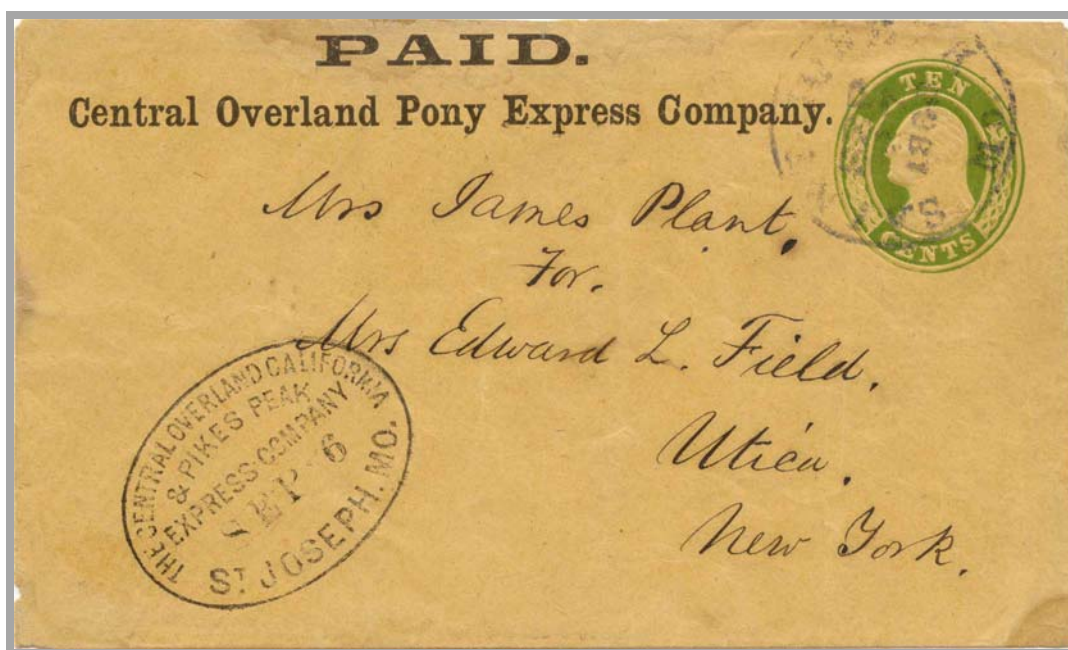 PAID.
Central Overland Pony Express Company.
TEN
CENTS
1861
Mrs James Plant,
For.
Mrs Edward L. Field.
Utica.
New York.
THE CENTRAL OVERLAND CALIFORNIA
& PIKES PEAK
EXPRESS COMPANY
SEP 6
ST JOSEPH. MO.